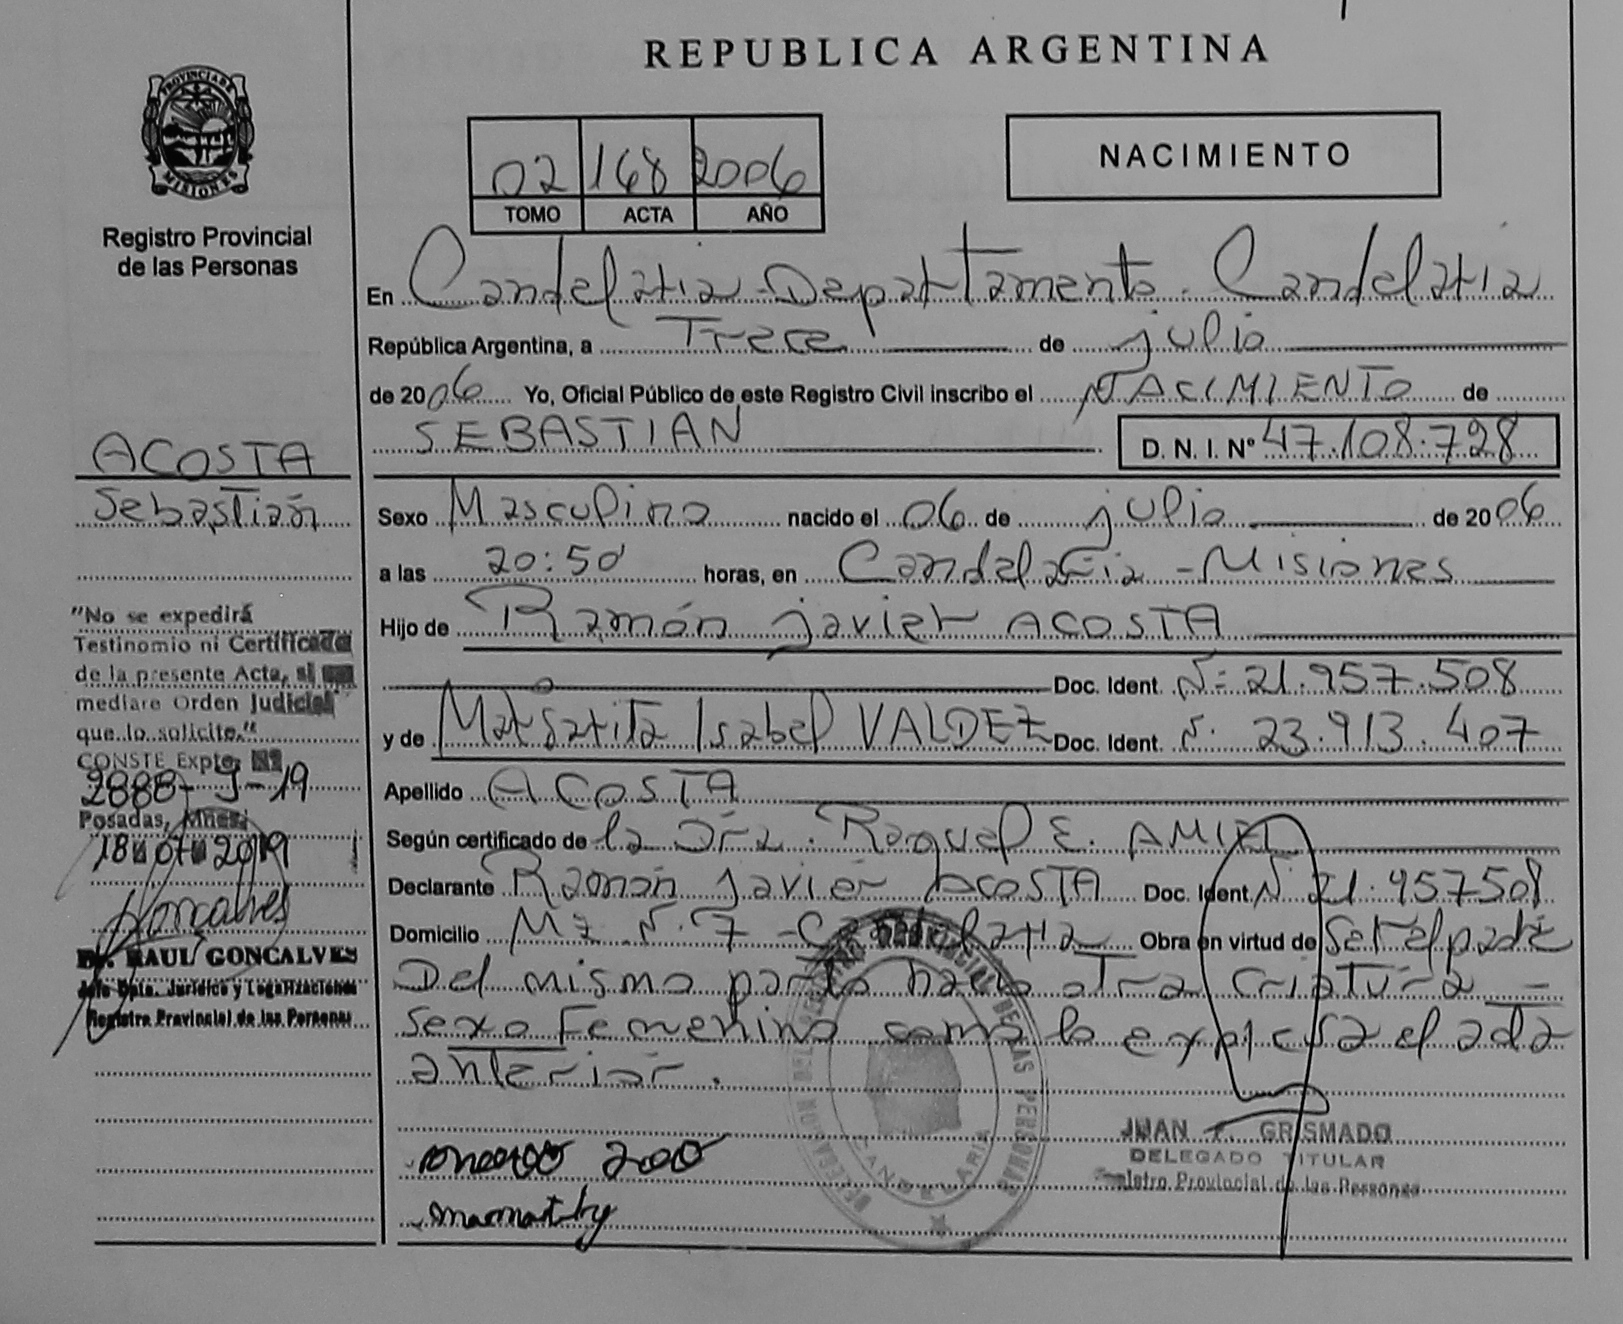 REPUBLICA ARGENTINA
PROVINCIA DE
MISIONES
Registro Provincial
de las Personas
02 168 2006
TOMO ACTA AÑO
NACIMIENTO
En Candelaria - Departamento Candelaria
República Argentina, a Trece de julio
de 2006 Yo, Oficial Público de este Registro Civil inscribo el NACIMIENTO de
SEBASTIAN D. N. I. Nº 47.108.728
ACOSTA
Sebastián
Sexo Masculino nacido el 06 de julio de 2006
a las 20:50 horas, en Candelaria - Misiones
Hijo de Ramón Javier ACOSTA
Doc. Ident. Nº 21.957.508
y de Margarita Isabel VALDEZ Doc. Ident. Nº 23.913.407
Apellido ACOSTA
Según certificado de la Dra. Raquel E. AMIEL
Declarante Ramón Javier ACOSTA Doc. Ident Nº 21.957508
Domicilio Mz. N. 7 - Candelaria Obra en virtud de Ser el padre
Del mismo parto nació otra criatura -
sexo Femenino como lo expresa el acta
anterior.
"No se expedirá
Testinomio ni Certificado
de la presente Acta, si
mediare Orden Judicial
que lo solicite."
CONSTE Expte. Nº
2888-J-19
Posadas, Mnes.
18 07 2019
Goncalves
Dr. RAUL GONCALVES
Jefe Dpto. Jurídico y Legalizaciones
Registro Provincial de las Personas
CANDELARIA
JUAN F. GRISMADO
DELEGADO TITULAR
Registro Provincial de las Personas